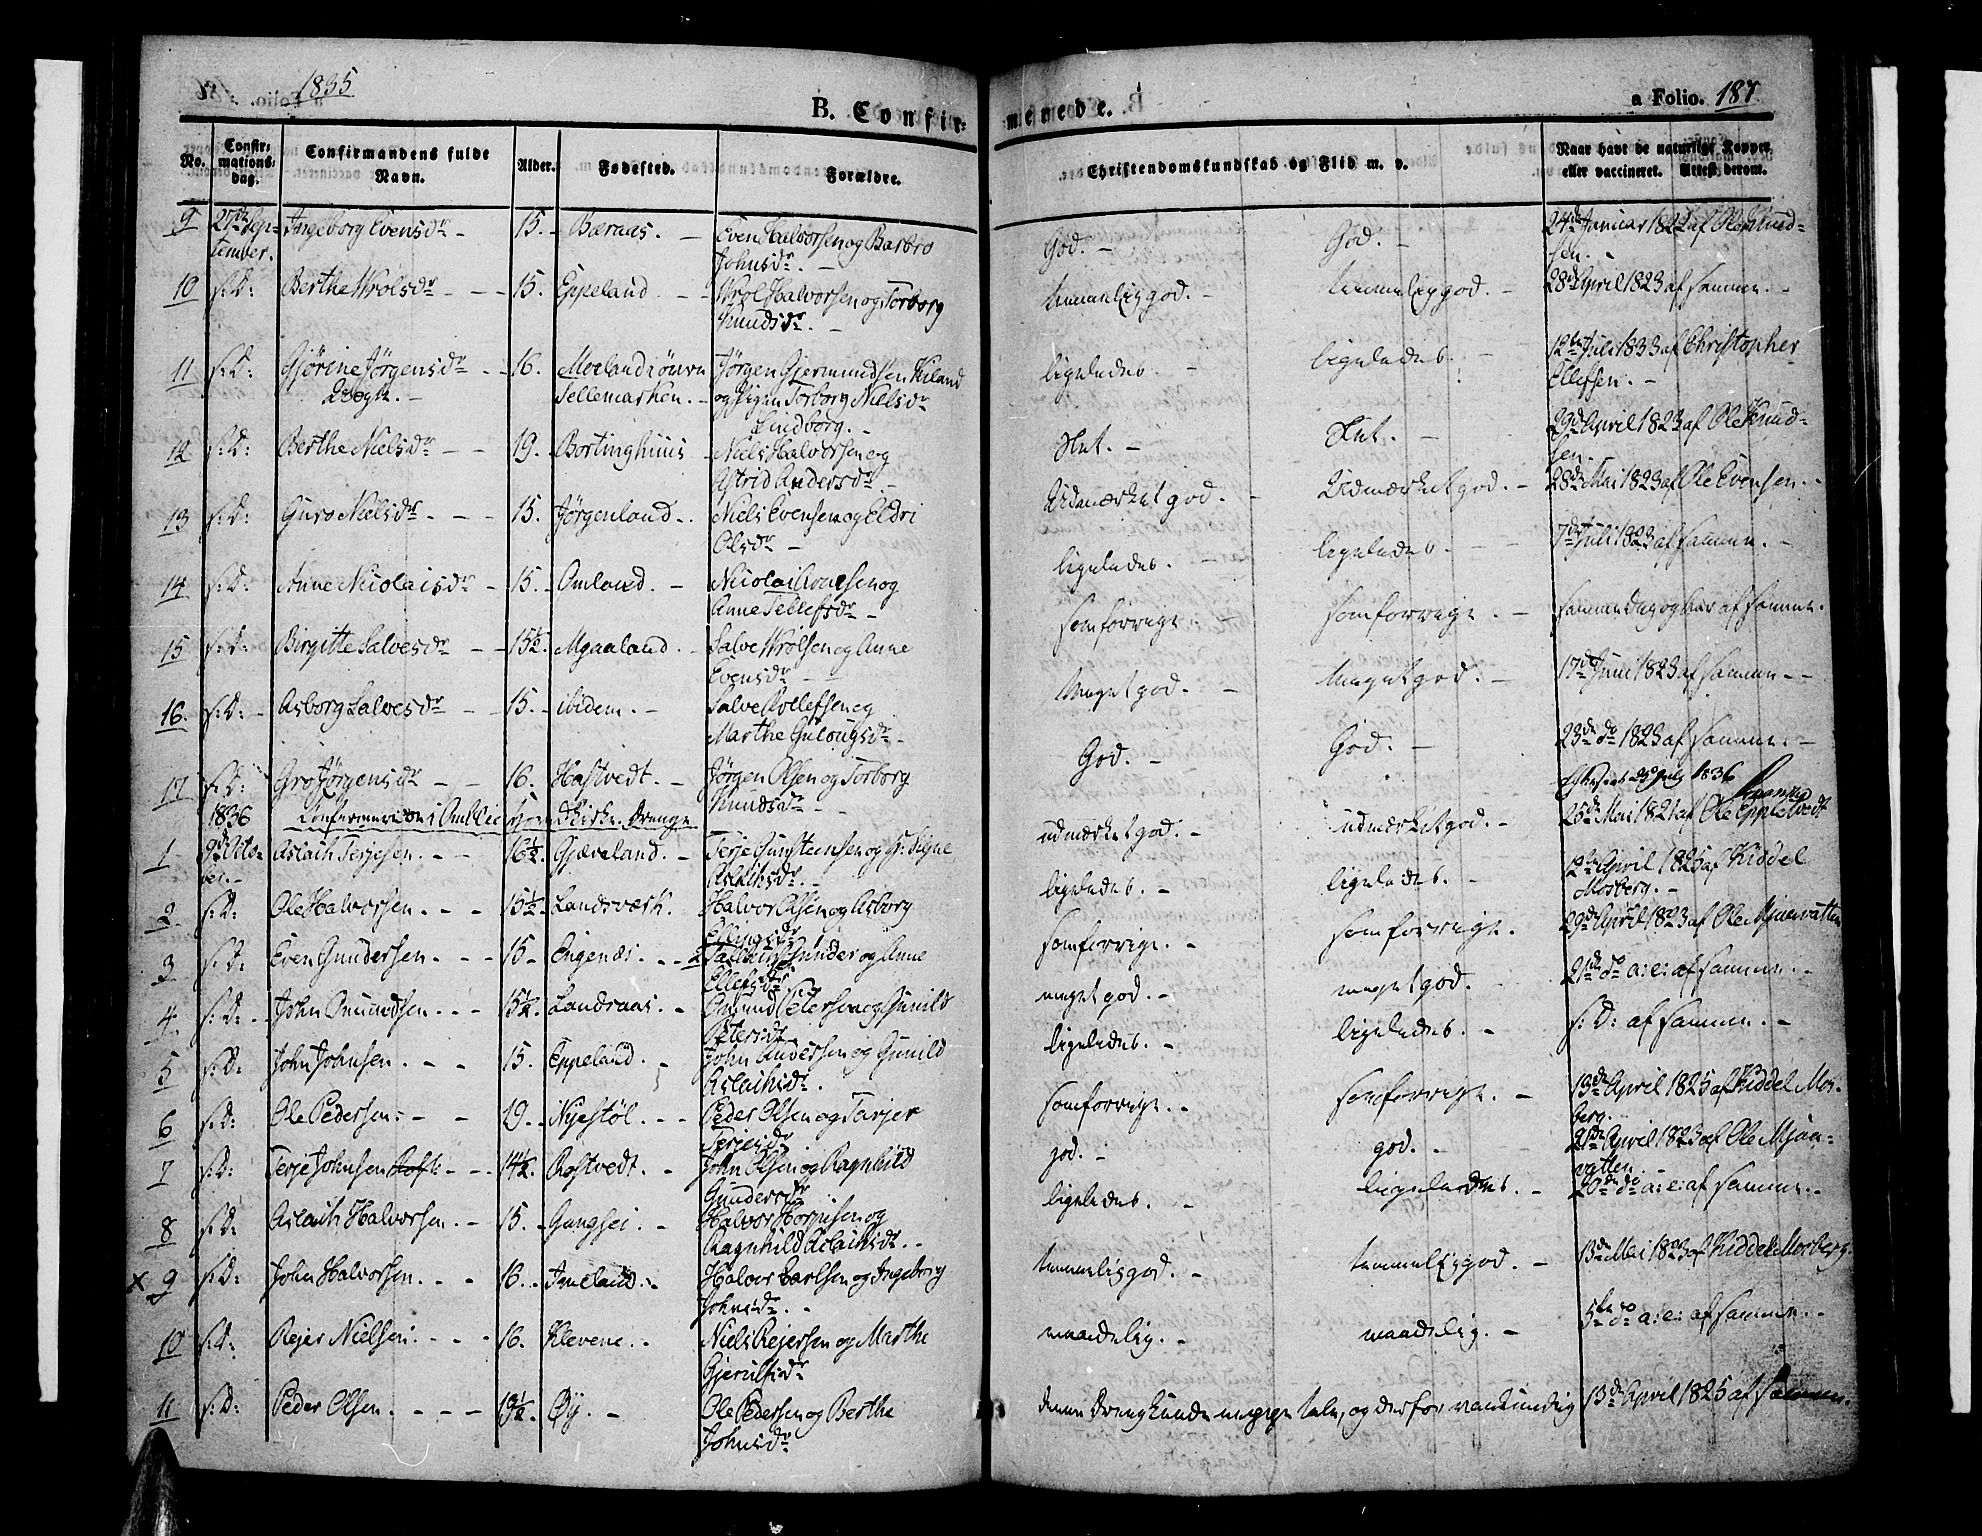 1835
B. Confir-
merede.
a Folio. 187
No.
Confir-
mations-
dag.
Confirmandens fulde
Navn.
Alder.
Fødested.
Forældre.
Christendomskundskab og Flid m. v.
Naar havt de naturlige Kopper
eller vaccineret. Attest derom.
9 27de Sep- Ingeborg Evensdr - 15. - Baraas. - Even Halvorsen og Barbro God. - God. - 24de Januar 1822 af Ole Knud-
tember. Johnsdr. - sen. -
10 s: D: Berthe Wrolsdr - - - 15. Eppeland. - - Wrol Halvorsen og Torborg temmelig god. - temmelig god. - 28de April 1823 af samme. -
Knudsdr. -
11 s: D: Gjørine Jørgensdr - - 16. Moeland i øvre Jørgen Gjermundsen Kiland ligeledes. - ligeledes. - 12te Juli 1833 af Christopher
Vogn. - Tellemarken. - og Pigen Torborg Nielsdr Ellefsen. -
Lindborg. -
12 s: D: Berthe Nielsdr - - 19. Bortinghuus - Niels Halvorsen og Slet. - Slet. - 29de April 1823 af Ole Knud-
Astrid Andersdr - sen. -
13 s: D: Guro Nielsdr. - - - 15. Jørgenland - . Niels Evensen og Eldri Udmærket god. - Udmærket god. - 28de Mai 1823 af Ole Evensen. -
Olsdr -
14 s: D: Anne Nicolaisdr - 15. - Omland. - Nicolai og ligeledes. ligeledes. - - 7de Juli 1823 af samme. -
Anne Tellefsdr -
15 s: D: Birgitte Salvesdr - - 15½. Mjaaland. - Salve Wrolsen og Anne somforrige - somforrige. - samme Dag og Aar af samme.
Evensdr - -
16. s: D: - Asborg Salvesdr - - 15. - ibidem. - Salve Rollefsen og Meget god. - Meget god. - 17de Juni 1823 af samme. -
Marthe Gulougsdr -
17 s: D: Gro Jørgensdr - - 16. Hastvedt. - Jørgen Olsen og Torborg God. - God. - 23de do 1823 af samme. -
Knudsdr -
1836
1836 Confirmerede i Omlie Kirke. Drenge.
1 9de Octo- Aslach Terjesen. - - 16½. Gjæveland. - Terje Gunsteensen og Signe udmærket god. - udmærket god. - 25de Mai 1821 af Ole Eppletvedt
ber. - Aslachsdr. -
2 s: D: Ole Halvorsen. - - 15½. Landsværk. Halvor Olsen og Asborg ligeledes. - ligeledes. - 12te April 1825 af Kiddel
Ellingsdr Mosberg. -
3 s: D: Even Gundersen - - - 15 - Engenæs. - - Gunder og Anne somforrige. - somforrige. 29de April 1823 af Ole Mjaavatten
Ellefsdr
4. s: D: - John Omundsen. - - 15½. Landraas. - Omund Petersen og Gunild meget god. - meget god. 21de do a: c: af samme. -
Petersdr
5 s: D: John Johnsen. - - - 15. Eppeland. - John Andersen og Gunild ligeledes. - ligeledes. - s: D: af samme. -
Aslachsdr.
6 s: D: Ole Pedersen: - - 19. - Nyestøl. - - Peder Olsen og Tarjer somforrige. - somforrige. - 13de April 1825 af Kiddel Mos-
Terjesdr berg. -
7 s: D: Terje Johnsen - - - 14½. Rostvedt. - John Olsen og Ragnhild god. - god. - 21de April 1823 af Ole Mjaa-
Gundersdr vatten. -
8 s: D: Aslach Halvorsen. - 15. - Gangsei. - Halvor og ligeledes. - ligeledes. - 20de do a: c: af samme. -
Ragnhild Aslachsdr. -
x 9 s: D: John Halvorsen. - - 16. - Imeland. - Halvor Carlsen og Ingeborg temmelig god. - temmelig god. - 13de Mai 1823 af Kiddel Mosberg.
Johnsdr. -
10 s: D: Rejer Nielsen. - - - 16. Klevene. - Niels Rejersen og Marthe maadelig. - maadelig. - 5te do a: c: af samme. -
Gjerulfsdr
11 s: D: Peder Olsen. - - - 19½. Øy. - Ole Pedersen og Berthe denne Dreng kunde tale, og derfor vankundig 13de April 1825 af samme.
Johnsdr